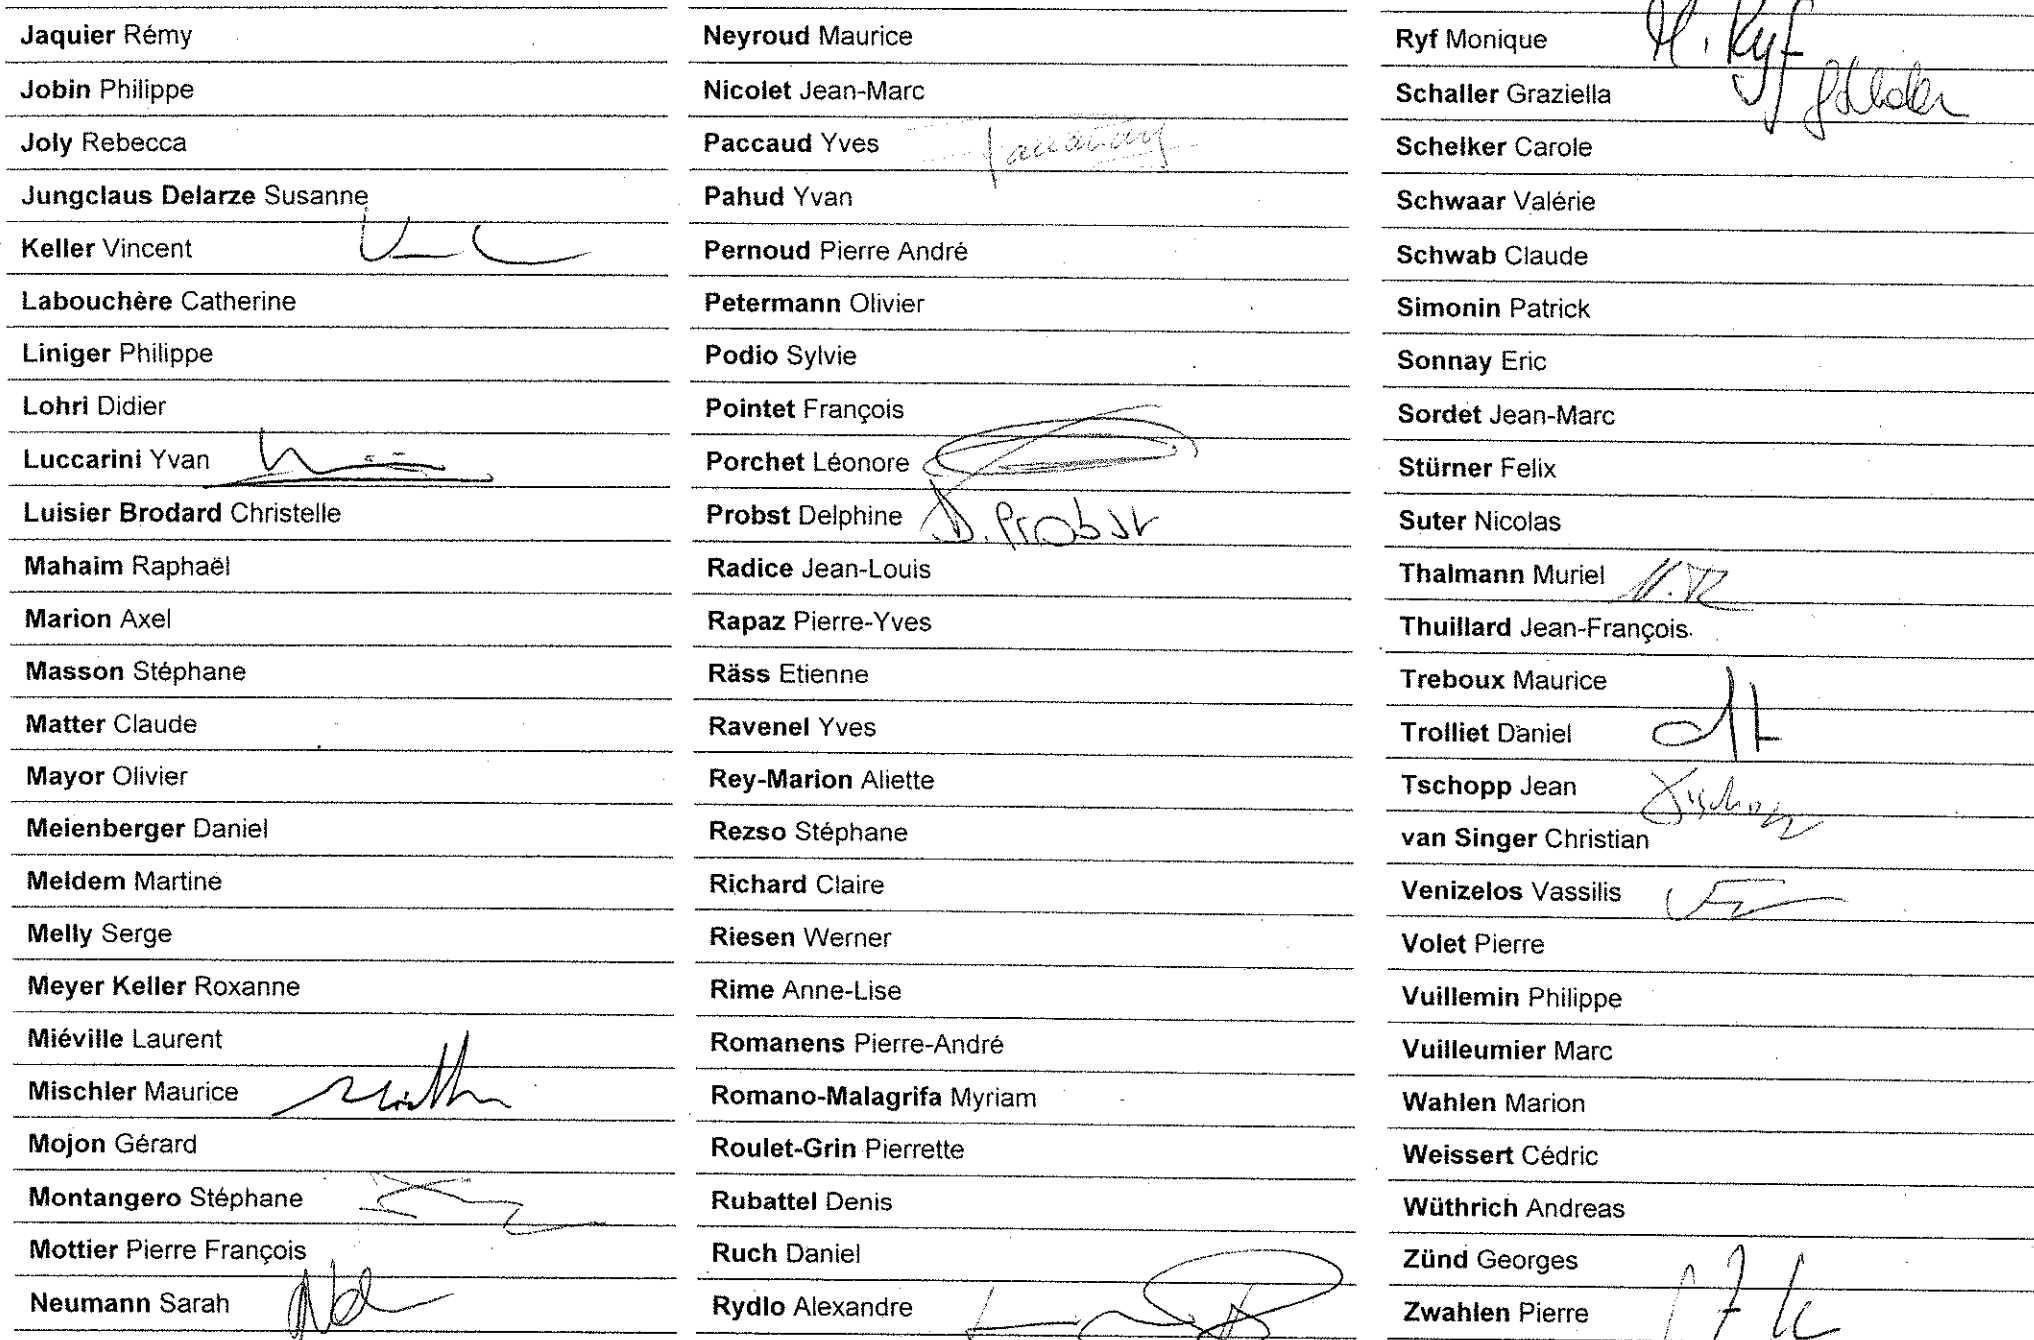 Jaquier Rémy
Jobin Philippe
Joly Rebecca
Jungclaus Delarze Susanne
Keller Vincent
Labouchère Catherine
Liniger Philippe
Lohri Didier
Luccarini Yvan
Luisier Brodard Christelle
Mahaim Raphaël
Marion Axel
Masson Stéphane
Matter Claude
Mayor Olivier
Meienberger Daniel
Meldem Martine
Melly Serge
Meyer Keller Roxanne
Miéville Laurent
Mischler Maurice
Mojon Gérard
Montangero Stéphane
Mottier Pierre François
Neumann Sarah
Neyroud Maurice
Nicolet Jean-Marc
Paccaud Yves
Pahud Yvan
Pernoud Pierre André
Petermann Olivier
Podio Sylvie
Pointet François
Porchet Léonore
Probst Delphine D. Probst
Radice Jean-Louis
Rapaz Pierre-Yves
Räss Etienne
Ravenel Yves
Rey-Marion Aliette
Rezso Stéphane
Richard Claire
Riesen Werner
Rime Anne-Lise
Romanens Pierre-André
Romano-Malagrifa Myriam
Roulet-Grin Pierrette
Rubattel Denis
Ruch Daniel
Rydlo Alexandre
Ryf Monique M. Ryf
Schaller Graziella
Schelker Carole
Schwaar Valérie
Schwab Claude
Simonin Patrick
Sonnay Eric
Sordet Jean-Marc
Stürner Felix
Suter Nicolas
Thalmann Muriel
Thuillard Jean-François
Treboux Maurice
Trolliet Daniel
Tschopp Jean
van Singer Christian
Venizelos Vassilis
Volet Pierre
Vuillemin Philippe
Vuilleumier Marc
Wahlen Marion
Weissert Cédric
Wüthrich Andreas
Zünd Georges
Zwahlen Pierre